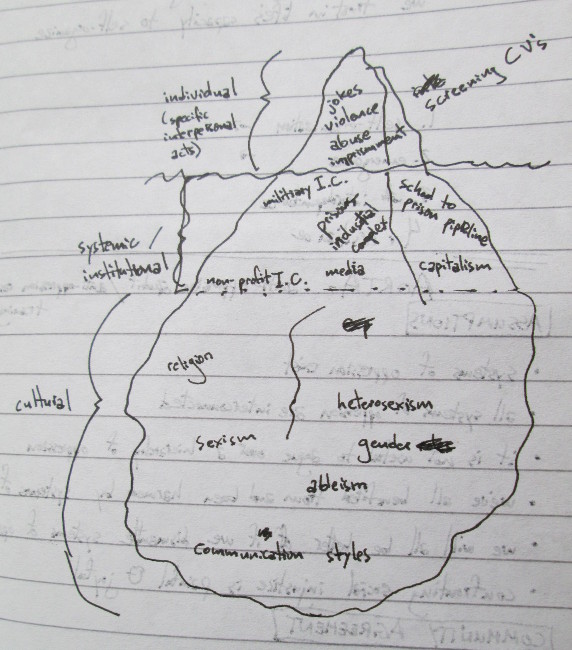 individual
(specific
interpersonal
acts)
jokes
violence
abuse
imprisonment
screening CV's
military I.C.
prison
industrial
complex
school to
prison pipeline
systemic
institutional
non-profit I.C.
media
capitalism
cultural
religion
heterosexism
sexism
gender
ableism
communication styles